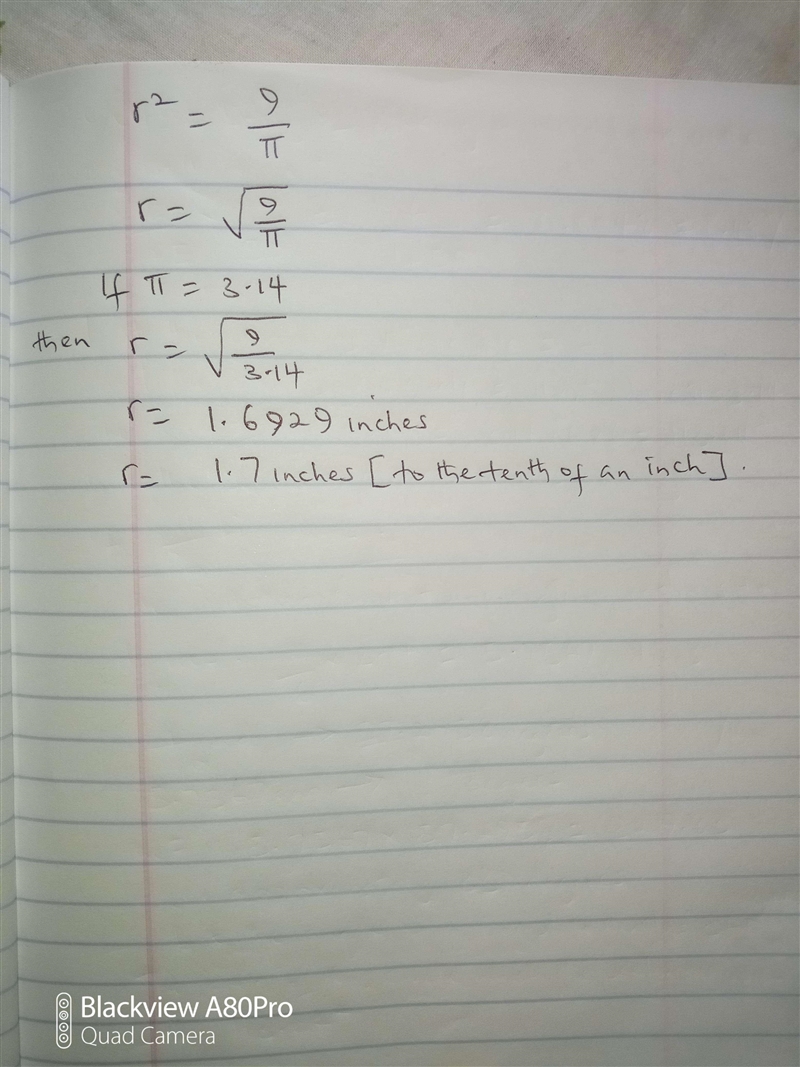 r² = 9/π
r = √(9/π)
If π = 3·14
then r = √(9/3·14)
r = 1.6929 inches
r = 1.7 inches [to the tenth of an inch].
Blackview A80Pro
Quad Camera